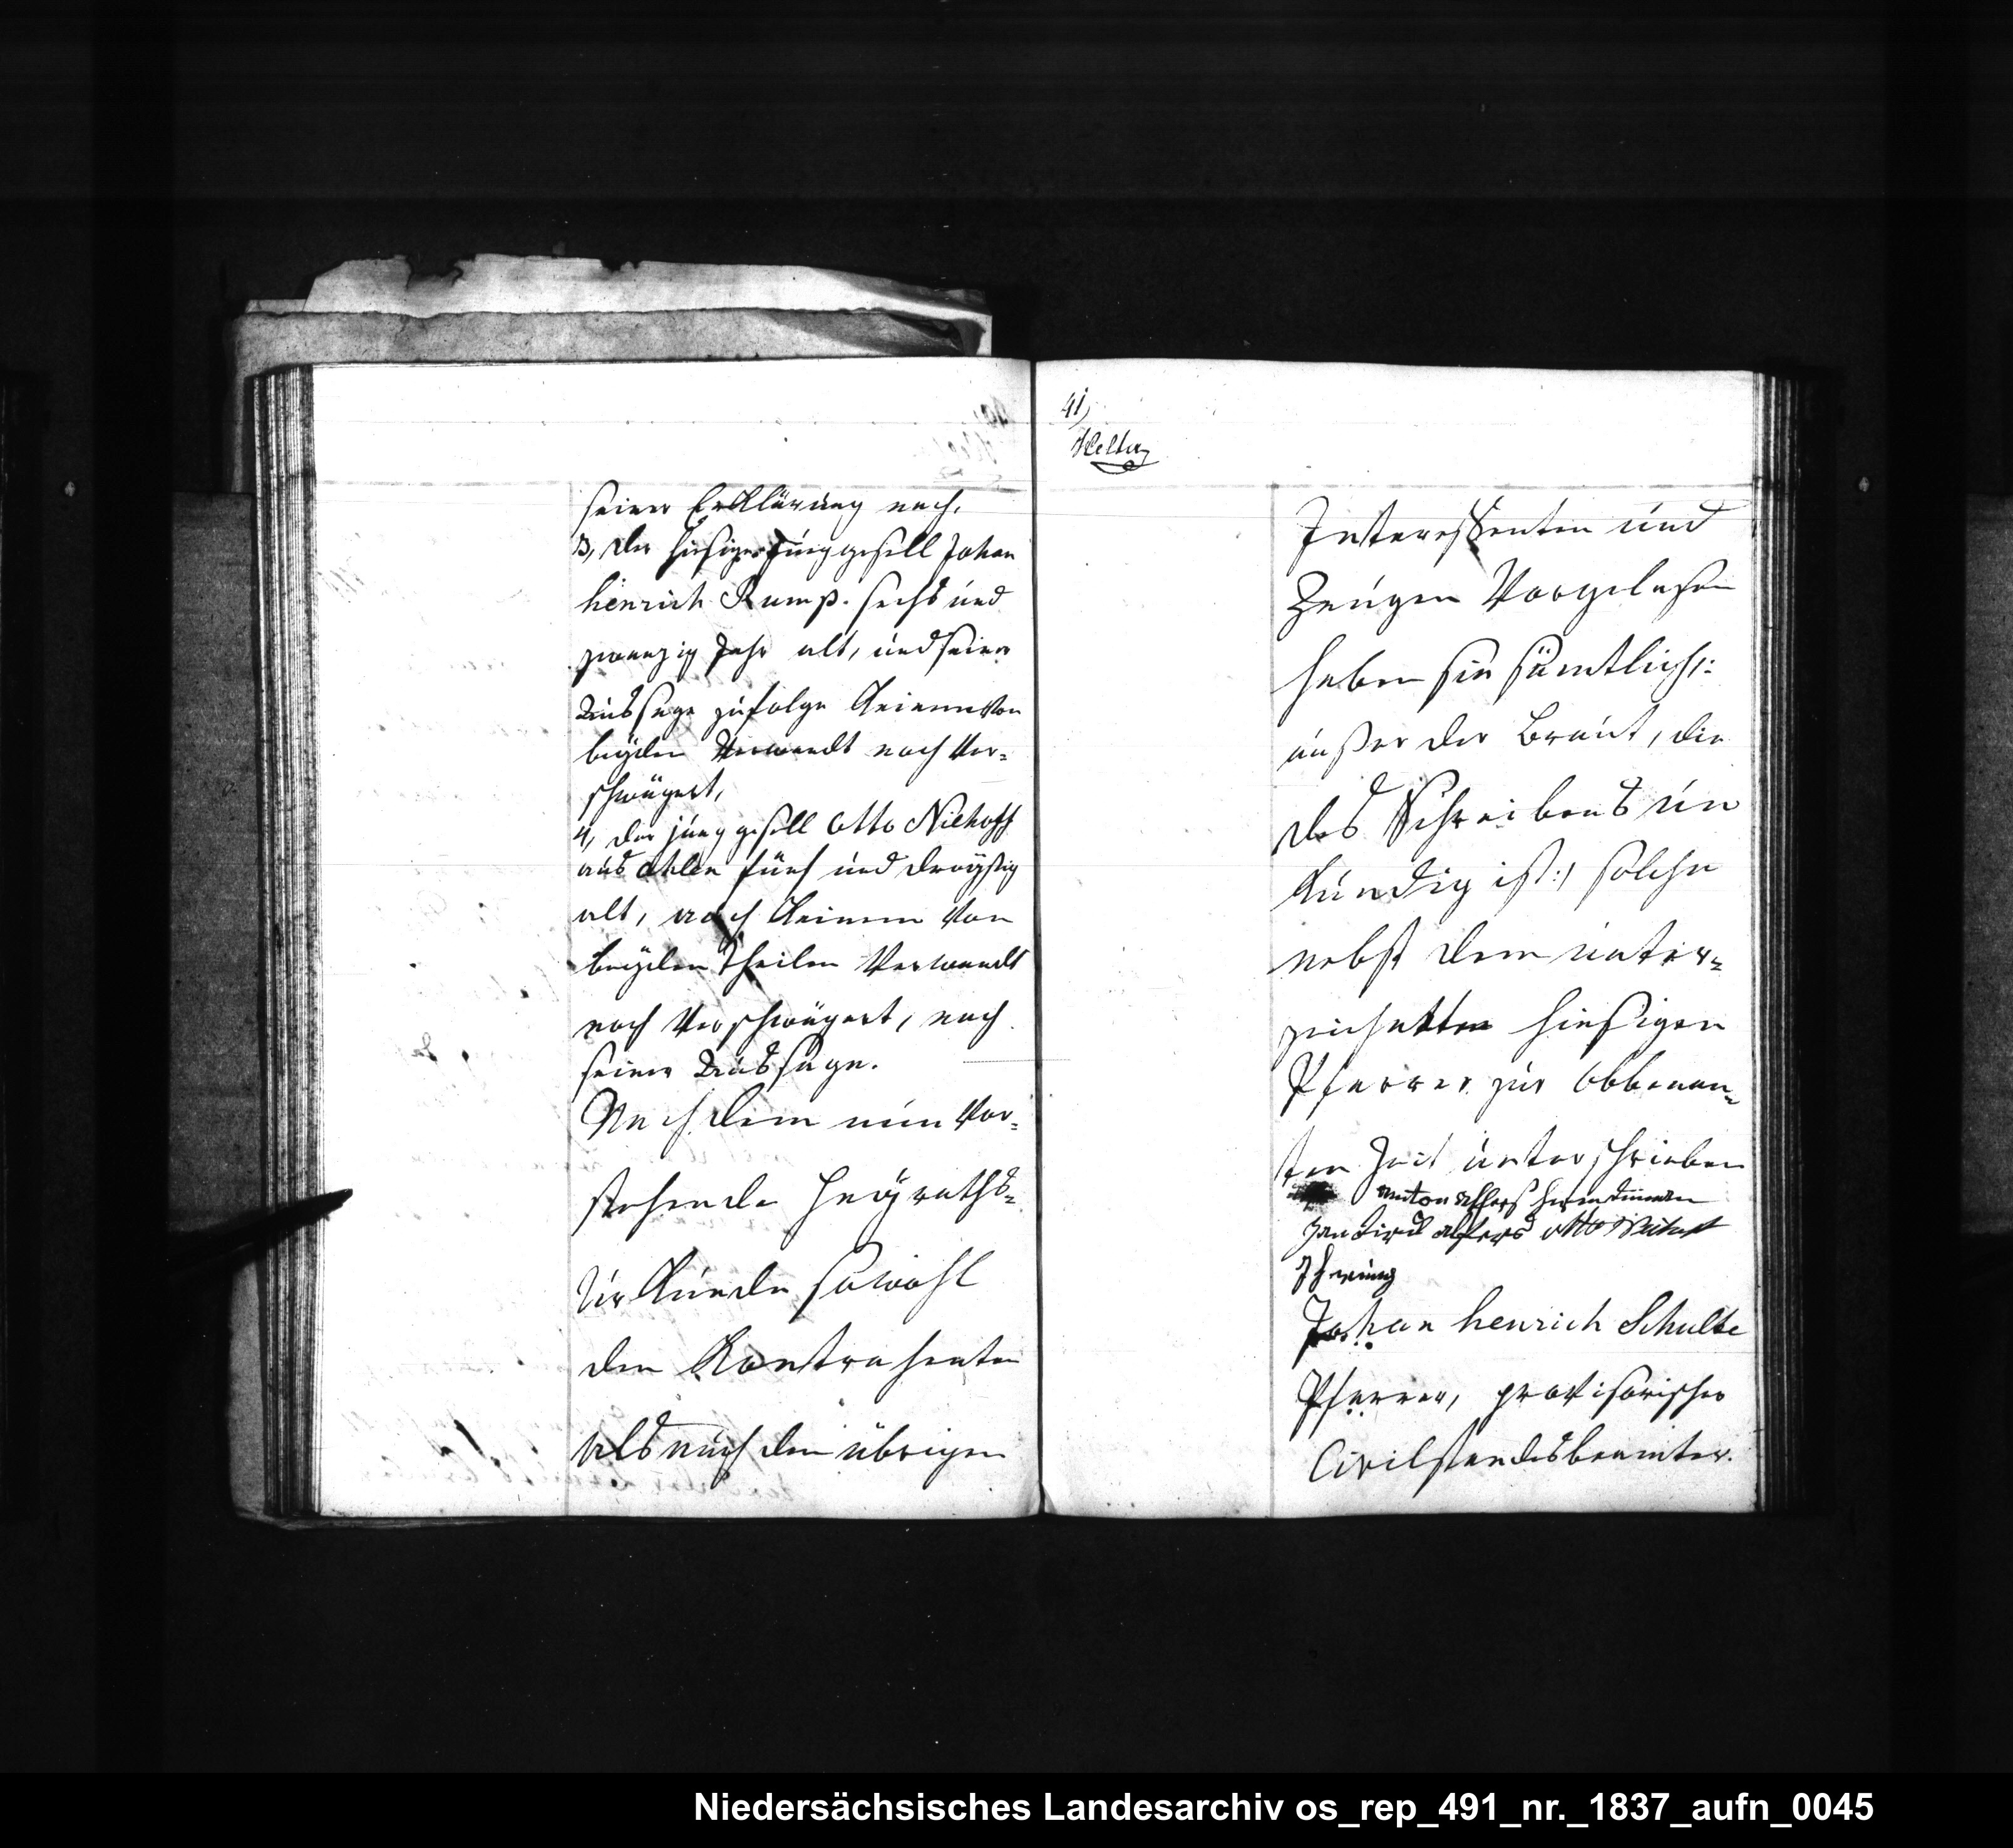 seiner Erklärung nach,
3, der hiesiger Junggesell Johan
henrich Rump. sechs und
zwanzig Jahr alt, und seiner
Aussage zufolge keinem von
beÿden Verwandt noch Ver=
schwägert,
4, der junggesell Otto Niehoff
aus Ahlen fünf und dreÿßig
alt, auch keinem von
beÿden Theilen Verwandt
noch Verschwägert, nach
seiner Aussage.
Nachdem nun Vor=
stehende Heÿraths=
Urkunde sowohl
den Kontrahenten
als auch den übrigen
41,
Interessenten und
Zeugen Vorgelesen
haben sie sämtlich:
außer der Braut, die
des Schreibens un
kundig ist:/ solche
nebst dem unter=
zeichetten hiesigen
Pfarrer zur Obbenan=
ten Zeit unterschrieben
anton
otto
Johan henrich Schulte
Pfarrer, provisorischer
Civilstandesbeamter.
Niedersächsisches Landesarchiv os_rep_491_nr._1837_aufn_0045